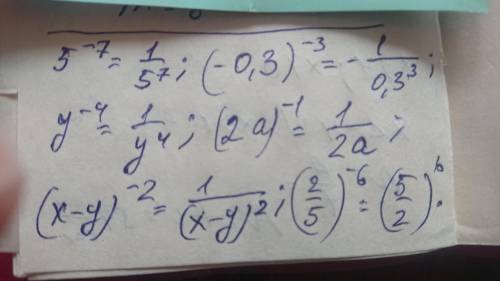 5^{-7} = \frac{1}{5^7}; (-0,3)^{-3} = -\frac{1}{0,3^3};
y^{-4} = \frac{1}{y^4}; (2a)^{-1} = \frac{1}{2a};
(x-y)^{-2} = \frac{1}{(x-y)^2}; (\frac{2}{5})^{-6} = (\frac{5}{2})^6.